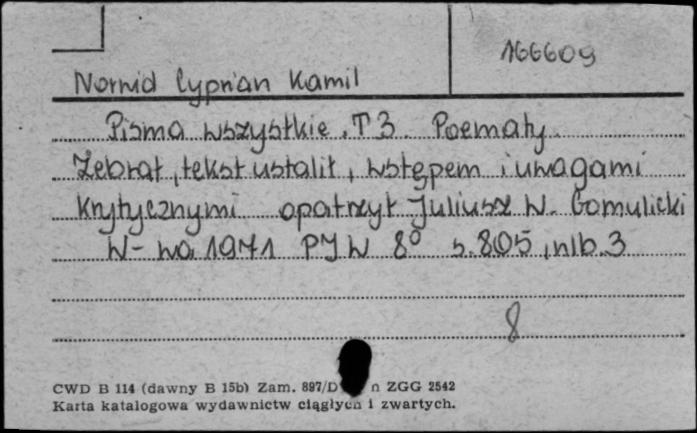 166609
Norwid Cyprian Kamil
Pisma wszystkie. T 3 Poematy.
Zebrał, tekst ustalił, wstępem i uwagami
krytycznymi opatrzył Juliusz W. Gomulicki
W-wa 1971 PIW 8° s. 805, nlb. 3
8
CWD B 114 (dawny B 15b) Zam. 897/D n ZGG 2542
Karta katalogowa wydawnictw ciągłych i zwartych.